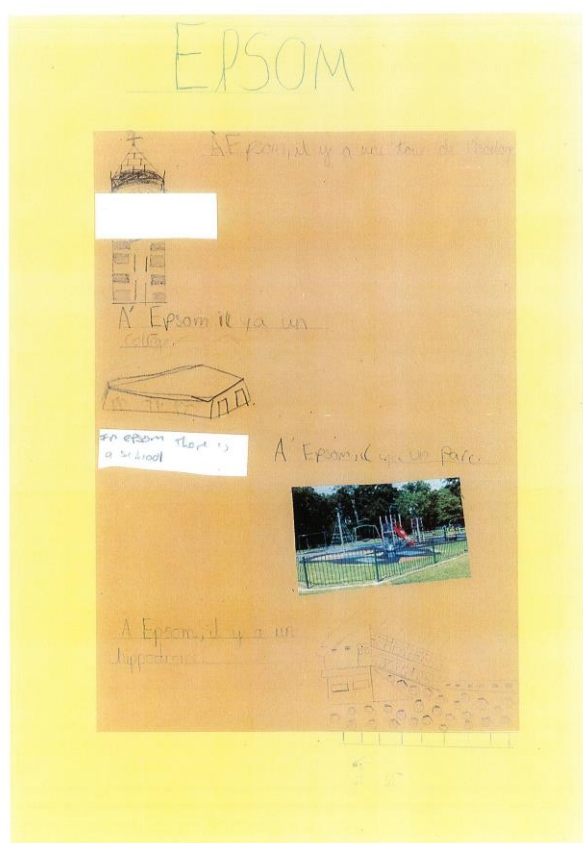 EPSOM
À Epsom, il y a une tour de l'horloge
A' Epsom il y a un
collège.
In epsom there is
a school
A' Epsom, il y a un parc.
A Epsom, il y a un
hippodrome